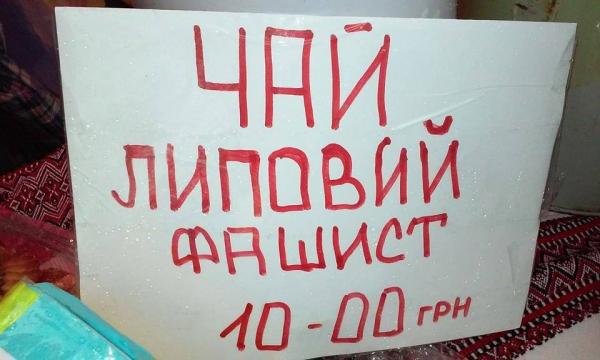 ЧАЙ
ЛИПОВИЙ
ФАШИСТ
10-00 ГРН